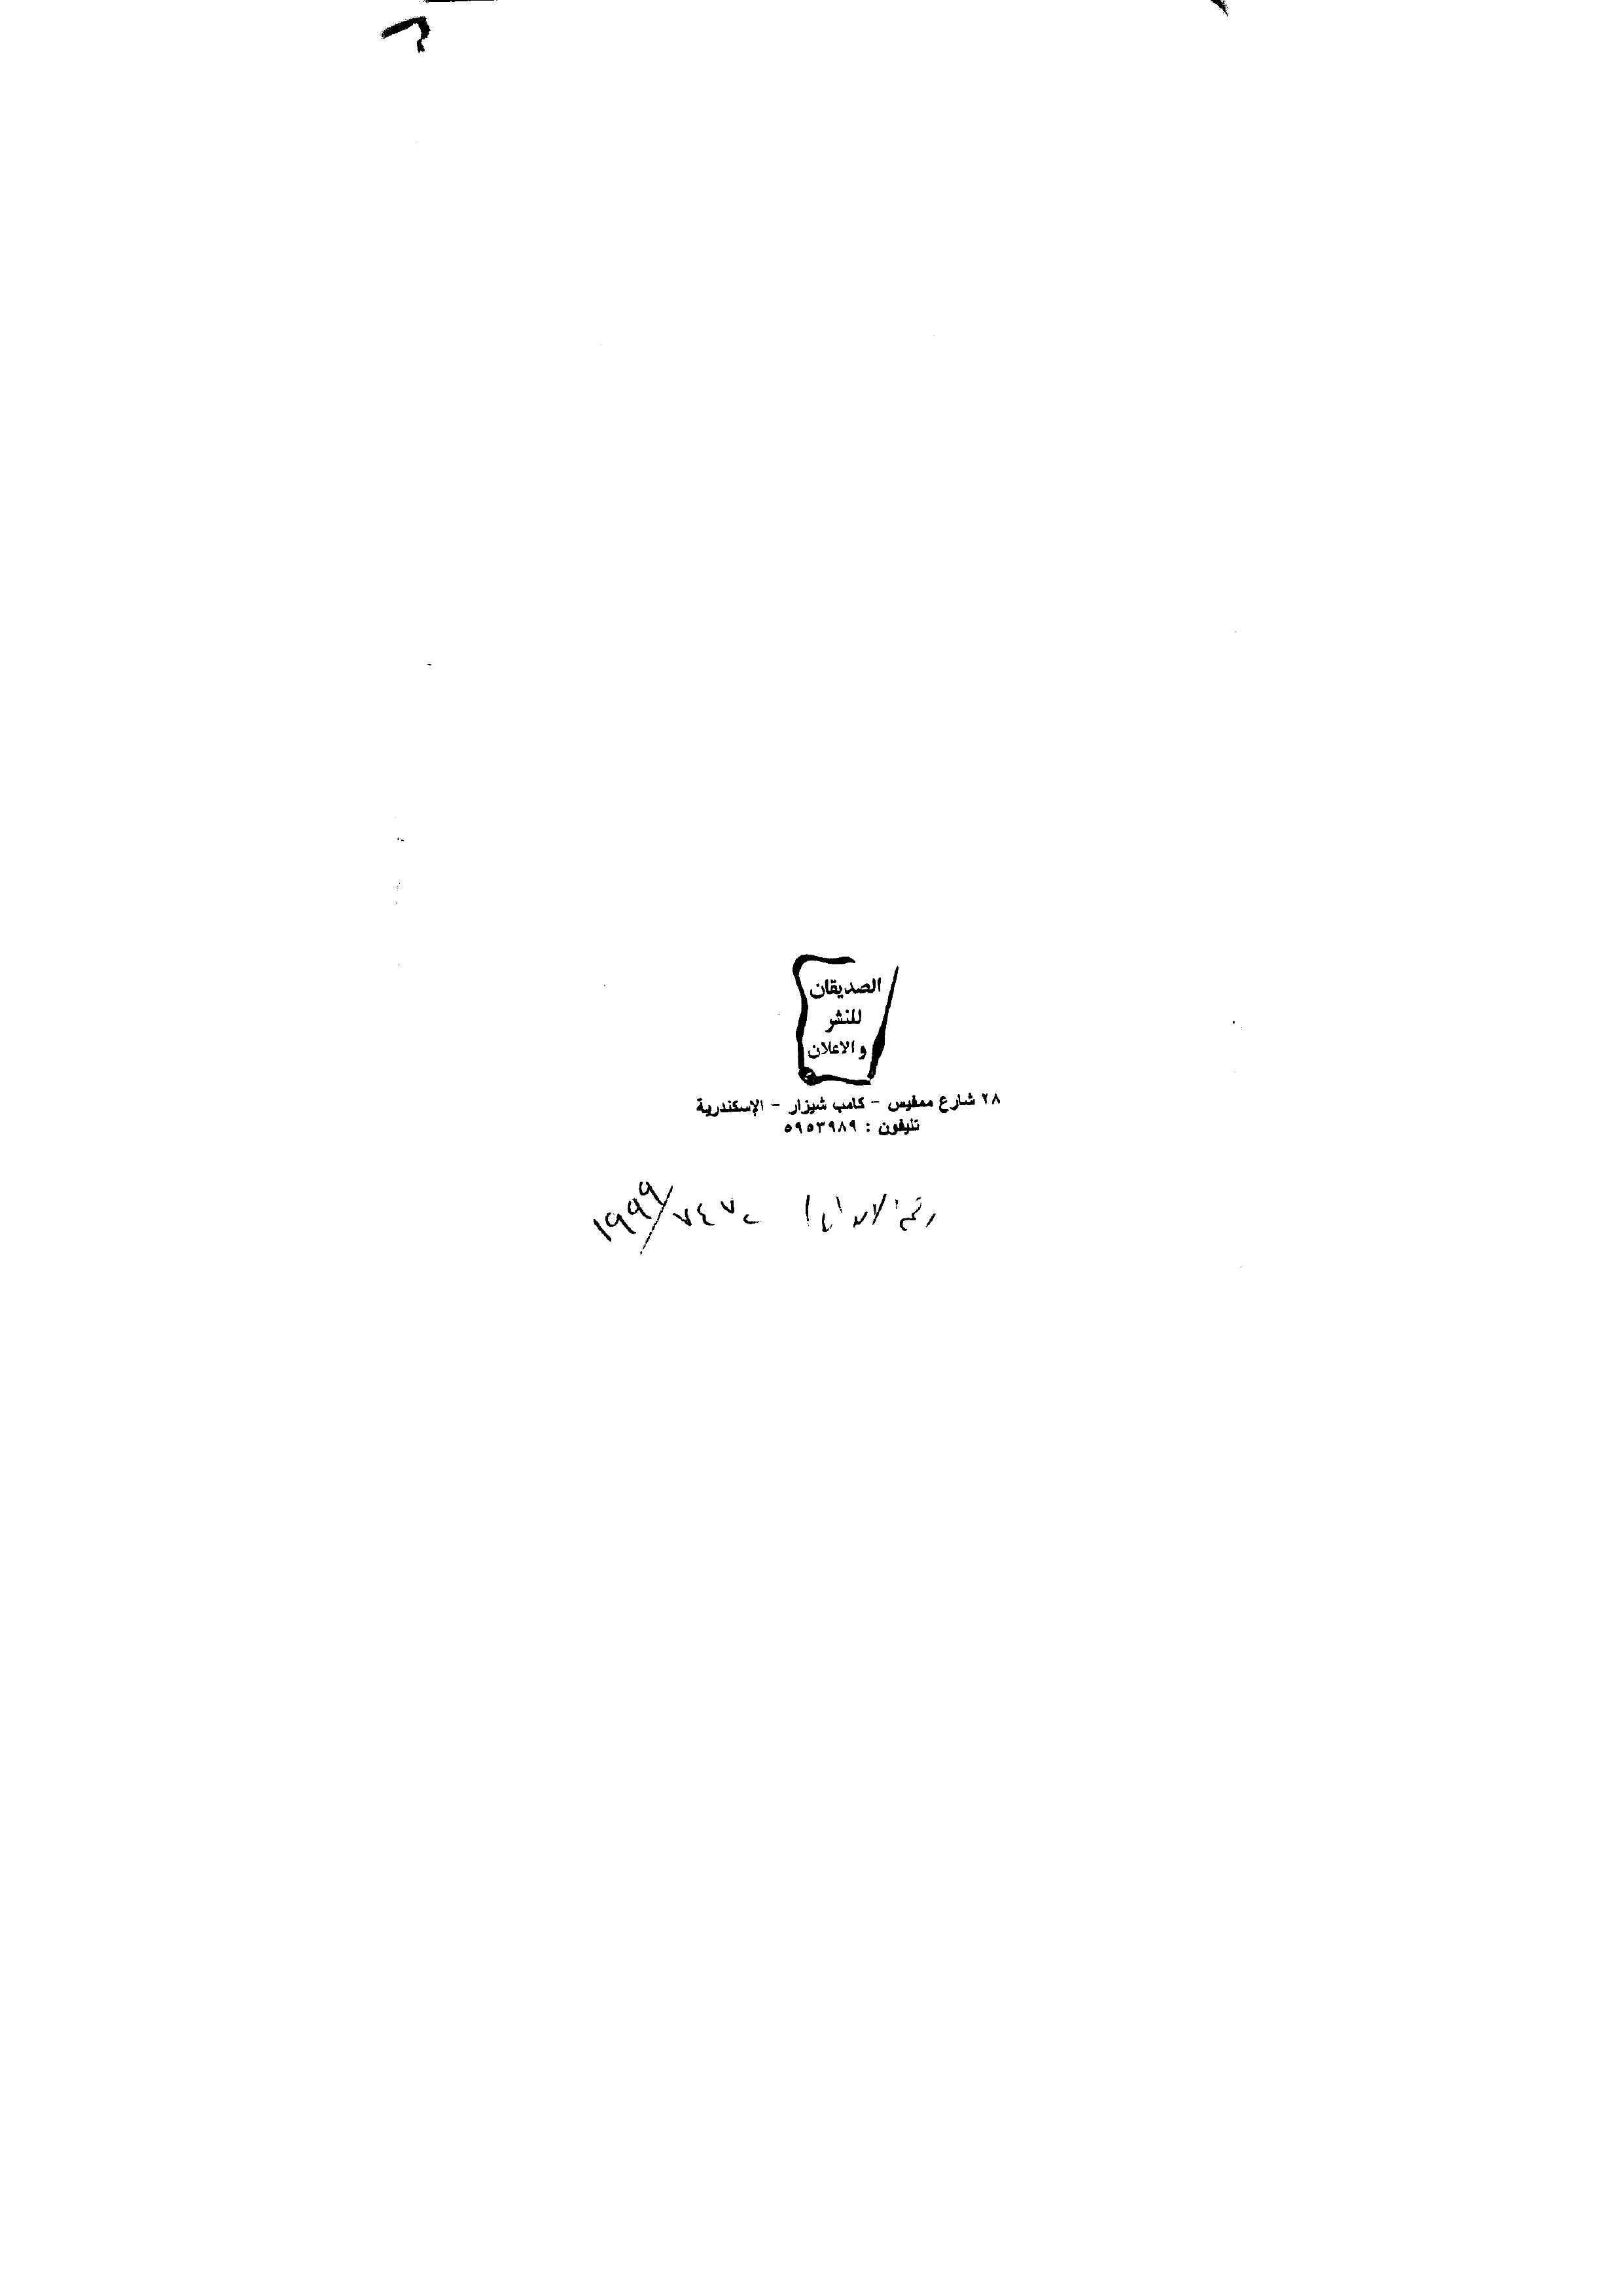 الصديقان
للنشر
والاعلان
٢٨ شارع ممفيس - كامب شيزار - الإسكندرية
تليفون : ٥٩٥٣٩٨٩
رقم الايداع ١٩٩٩/